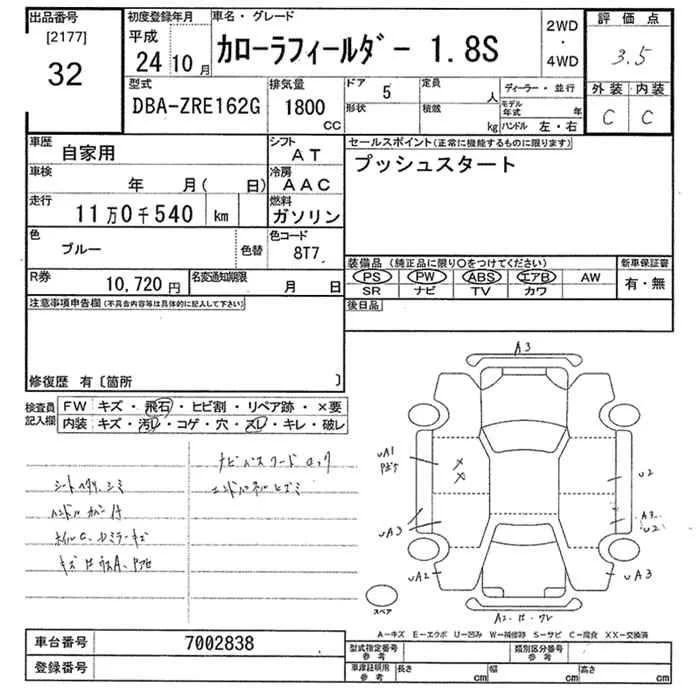 出品番号
[2177]
32
初度登録年月
平成
24 10 月
車名・グレード
カローラフィールダー 1.8S
2WD
・
4WD
評価点
3.5
外装 内装
C C
型式
DBA-ZRE162G
排気量
1800
CC
ドア 5
形状
定員 人
積載 kg
ディーラー・並行
モデル年式 年
ハンドル 左・右
車歴 自家用
シフト AT
車検 年 月( 日)
冷房 AAC
走行 11万0千540 km
燃料 ガソリン
色 ブルー 色替
色コード 8T7
R券 10,720円
名変通知期限 月 日
セールスポイント(正常に機能するものに限ります)
プッシュスタート
装備品(純正品に限り○をつけてください)
PS PW ABS エアB AW
SR ナビ TV カワ
新車保証書
有・無
後日品
注意事項申告欄(不具合内容等は具体的に記入して下さい)
修復歴 有〔箇所 〕
検査員
記入欄
FW キズ・飛石・ヒビ割・リペア跡・×要
内装 キズ・汚レ・コゲ・穴・スレ・キレ・破レ
ナビパスワードロック
エンドパネルヒズミ
A3
uA1
u2
uA3
uA2
uA3
スペア
A-キズ E-エクボ U-凹み W-補修跡 S-サビ C-腐食 X X-交換済
車台番号 7002838
登録番号
型式指定番号
参考
類別区分番号
参考
車庫証明用
参考
長さ cm
幅 cm
高さ cm